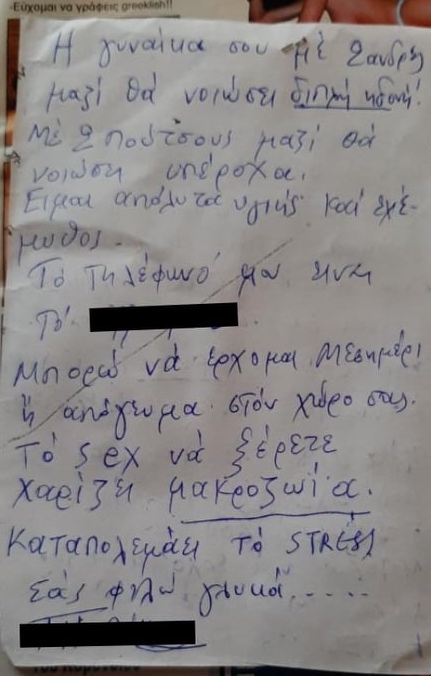 -Εύχομαι να γράφεις greeklish!!
Η γυναίκα σου μέ 2 ανδρες
μαζί θά νοιώσει διπλή ηδονή!
Μέ 2 πούτσους μαζί θά
νοιώσει υπέροχα.
Ειμαι απόλυτα υγιής καί εχέ-
μυθος.
Τό τηλέφωνό μου ειναι
τό
Μπορώ νά έρχομαι μεσημέρι
ή απόγευμα στόν χώρο σας.
Τό sex νά ξέρετε
χαρίζει μακροζωία.
Καταπολεμάει τό STRESS
Σάς φιλώ γλυκά.....